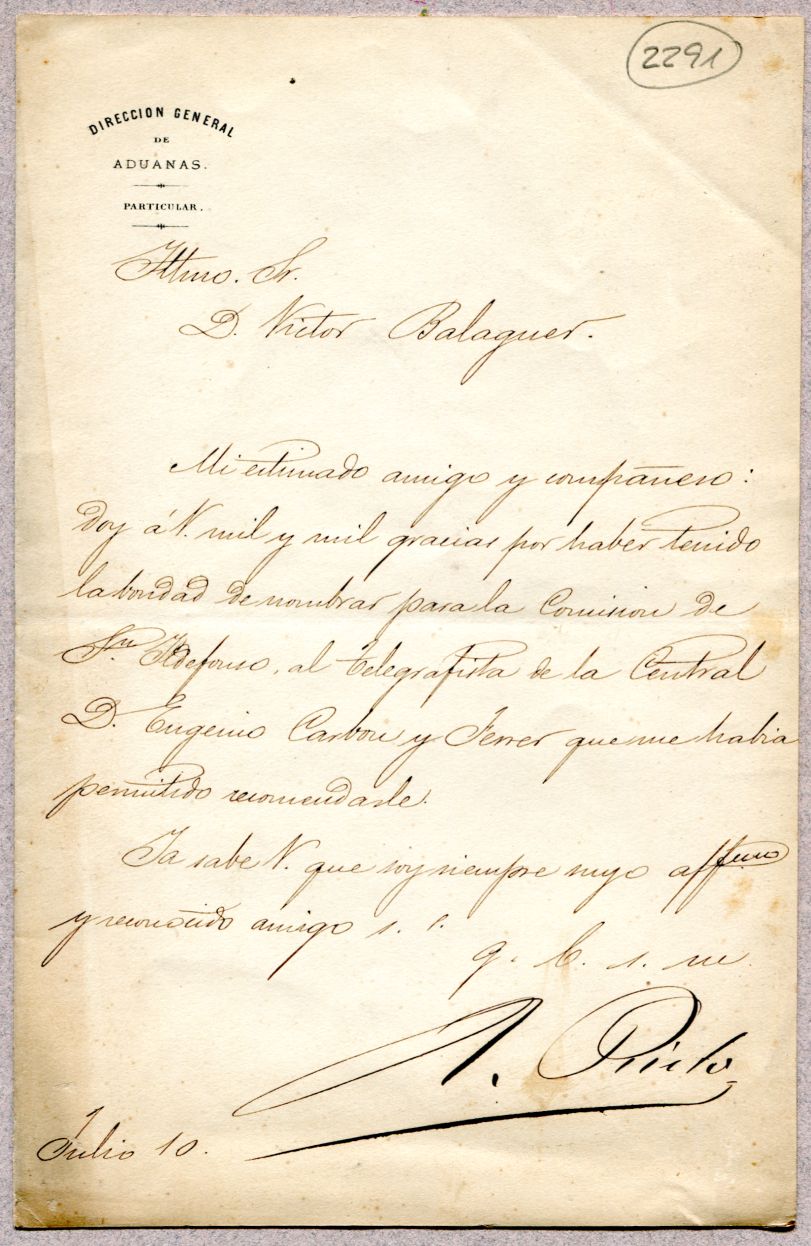 2291
DIRECCION GENERAL
DE
ADUANAS.
PARTICULAR.
Iltmo. Sr.
D. Victor Balaguer.
Mi estimado amigo y compañero:
doy á V. mil y mil gracias por haber tenido
la bondad de nombrar para la Comision de
Sn. Ildefonso, al telegrafista de la Central
D. Eugenio Carbou y Ferrer que me habia
permitido recomendarle.
Ya sabe V. que soy siempre suyo affmo
y reconocido amigo s. s.
q. b. s. m
A. Prieto
Julio 10.